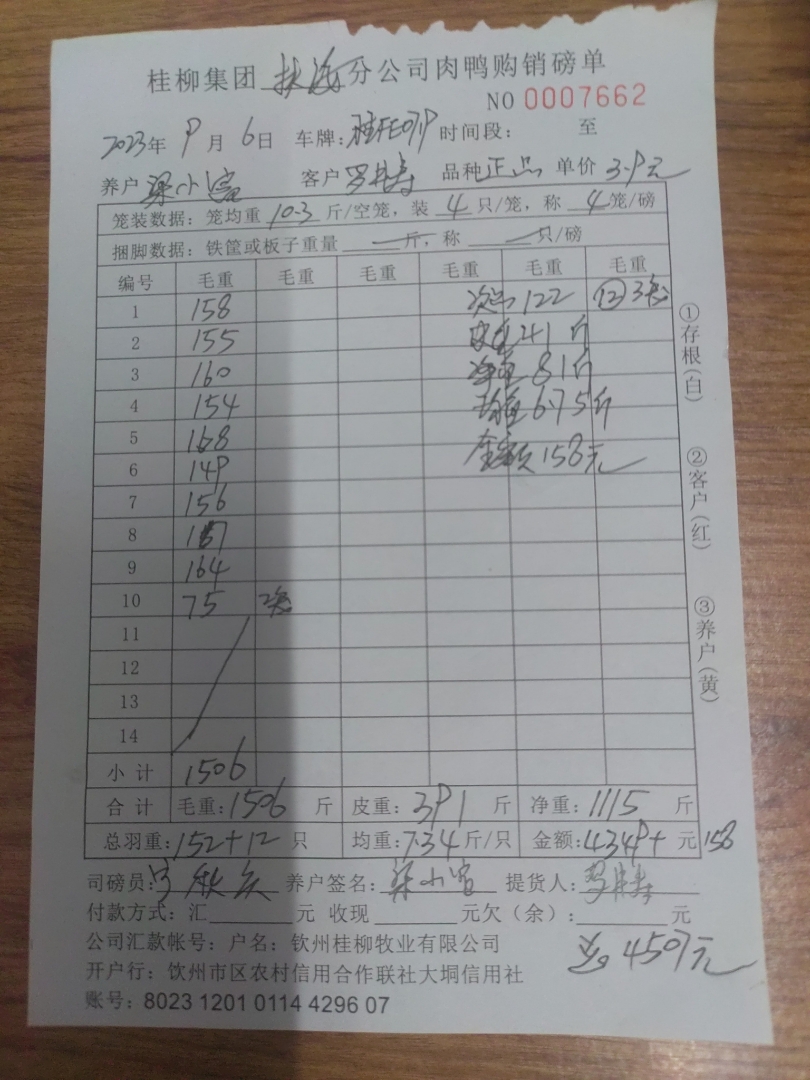 桂柳集团 扶海 分公司肉鸭购销磅单
NO 0007662
2023年 9 月 6 日 车牌: 时间段: 至
养户 梁小富 客户 品种 正品 单价 3.9元
笼装数据: 笼均重 10.3 斤/空笼, 装 4 只/笼, 称 4 笼/磅
捆脚数据: 铁筐或板子重量 斤, 称 只/磅
编号 毛重 毛重 毛重 毛重 毛重 毛重
1 158 次品 122 ⑫ 3
2 155 皮重 41 斤
3 160 净重 81斤
4 154 均重 6.75斤
5 168 金额 158元
6 149
7 156
8
9 164
10 75
11
12
13
14
小计 1506
合计 毛重: 1506 斤 皮重: 391 斤 净重: 1115 斤
总羽重: 152+12 只 均重: 7.34 斤/只 金额: 4349+ 元 158
司磅员: 养户签名: 梁小富 提货人:
付款方式: 汇 元 收现 元欠(余): 元
公司汇款帐号: 户名: 钦州桂柳牧业有限公司
4507元
开户行: 钦州市区农村信用合作联社大垌信用社
账号: 8023 1201 0114 4296 07
①存根(白) ②客户(红) ③养户(黄)